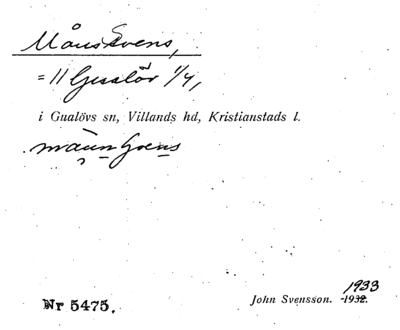 Måns Svens,
= 11 Gualöv 1/4,
i Gualövs sn, Villands hd, Kristianstads l.
månn Svens
Nr 5475.
John Svensson. 1932. 1933